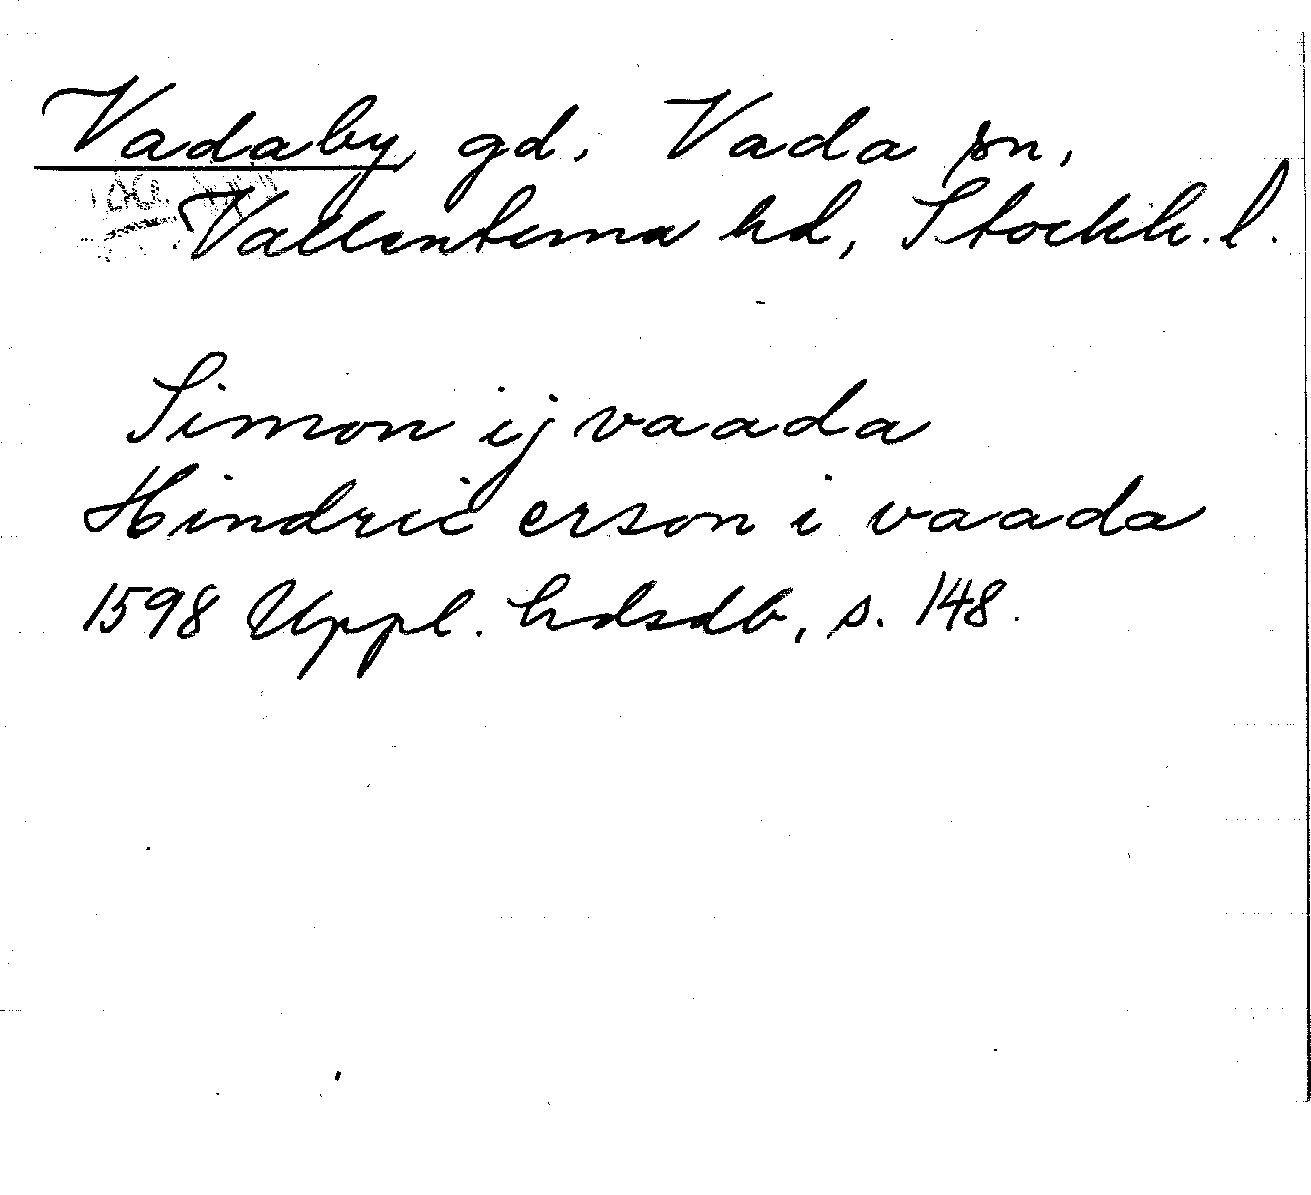 Vadaby gd, Vada sn,
Vallentuna hd, Stockh. l.
Simon ij vaada
Hindric erson i vaada
1598 Uppl. hdsdb, s. 148.